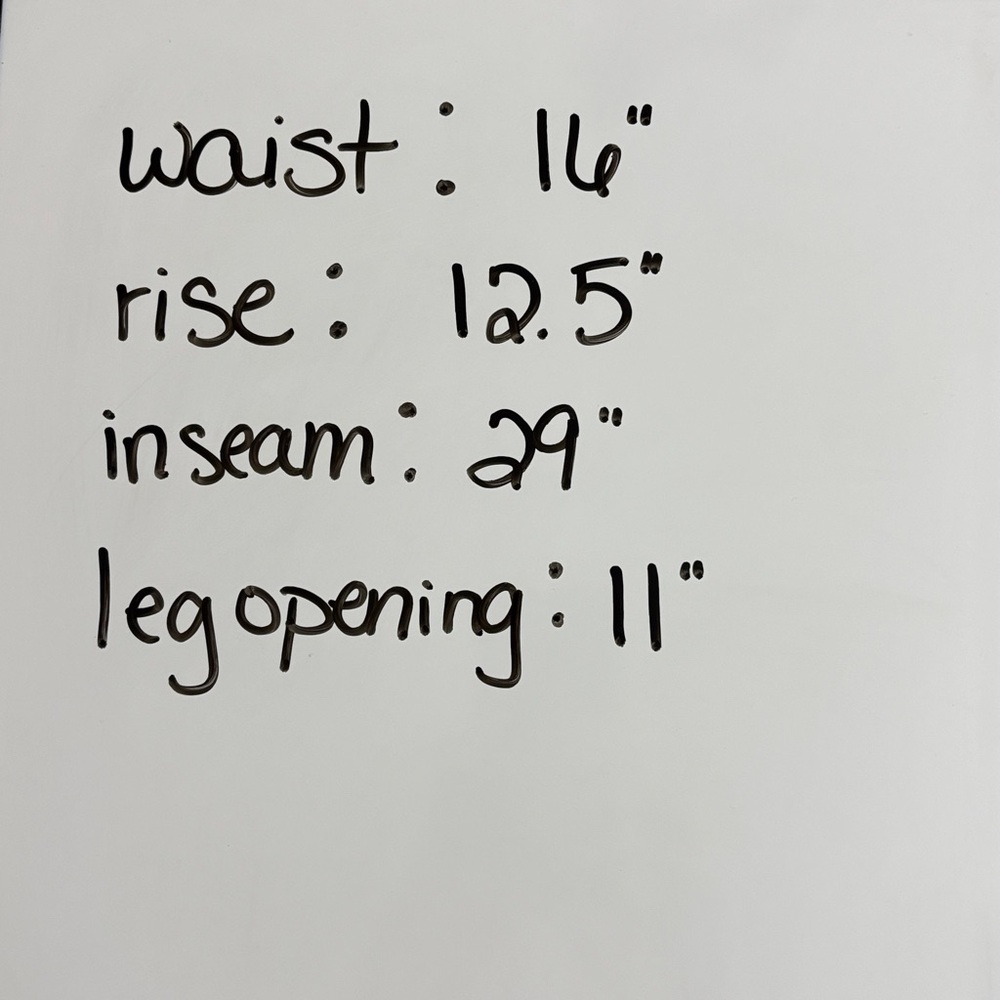 waist: 16"
rise: 12.5"
inseam: 29"
leg opening: 11"